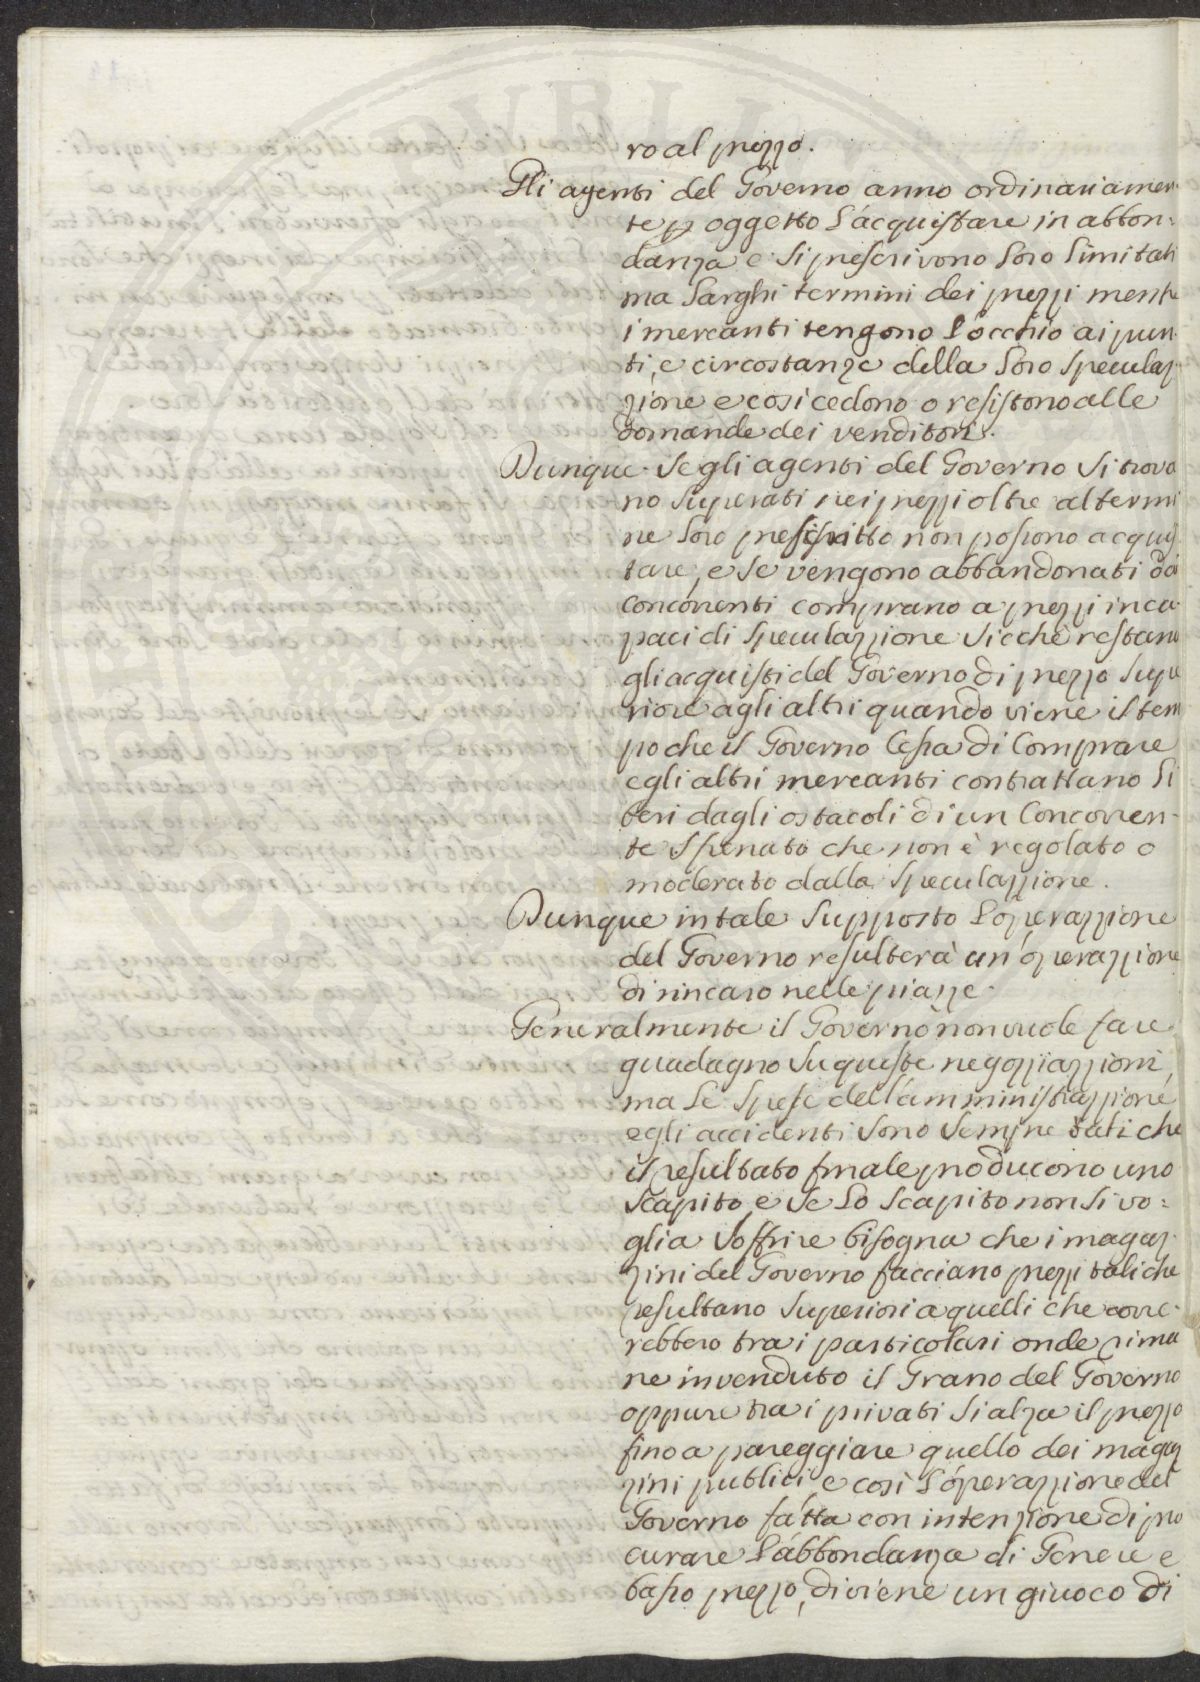 ro al prezzo.
Gli agenti del Governo anno ordinariamen
te p oggetto l'acquistare in abbon=
danza e si prescrivono loro limitati
ma larghi termini dei prezzi mentre
i mercanti tengono l'occhio ai pun
ti, e circostanze della loro specula
zione e così cedono o resistono alle
domande dei venditori.
Dunque se gli agenti del Governo si trova
no superati nei prezzi oltre al termi
ne loro prescritto non possono acquis
tare, e se vengono abbandonati dai
concorrenti comprano a prezzi inca
paci di speculazzione sicche restano
gli acquisti del Governo di prezzo supe
riore agli altri quando viene il tem
po che il Governo cessa di comprare
e gli altri mercanti contrattano li
beri dagli ostacoli di un Concorren-
te sfrenato che non è regolato o
moderato dalla speculazzione.
Dunque in tale supposto l'operazzione
del Governo resulterà un'operazzione
di rincaro nelle piazze.
Generalmente il Governo non vuole fare
guadagno su queste negozziazzioni,
ma le spese dell'amministrazzione
e gli accidenti sono sempre tali che
il resultato finale producono uno
scapito, e se lo scapito non si vo=
glia soffrire bisogna che i magaz
zini del Governo facciano prezzi tali che
resultano superiori a quelli che corre-
rebbero tra i particolari onde rima
ne invenduto il Grano del Governo
oppure tra i privati si alza il prezzo
fino a pareggiare quello dei magaz
zini publici e così l'operazzione del
Governo fatta con intenzione di pro
curare l'abbondanza di Genere e
basso prezzo, diviene un giuoco di